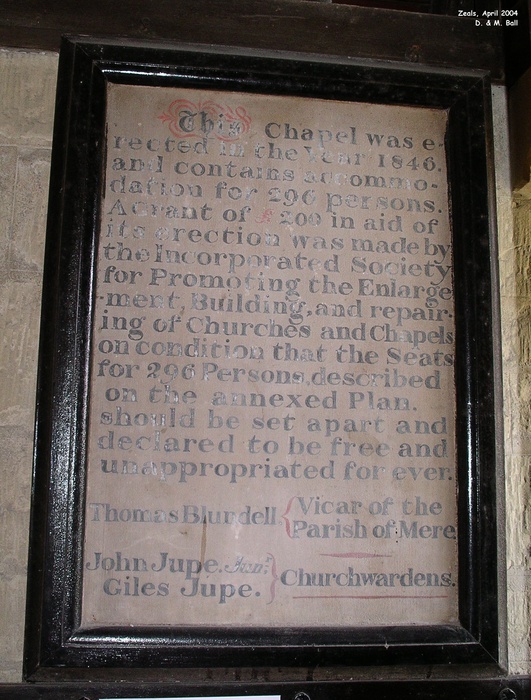 Zeals, April 2004
D. & M. Ball
This Chapel was e-
rected in the Year 1846.
and contains accommo-
dation for 296 persons.
A grant of £ 200 in aid of
its erection was made by
the Incorporated Society
for Promoting the Enlarge
-ment, Building, and repair-
ing of Churches and Chapels
on condition that the Seats
for 296 Persons, described
on the annexed Plan.
should be set apart and
declared to be free and
unappropriated for ever.
Thomas Blundell { Vicar of the
Parish of Mere
John Jupe. Junr.
Giles Jupe. } Churchwardens.